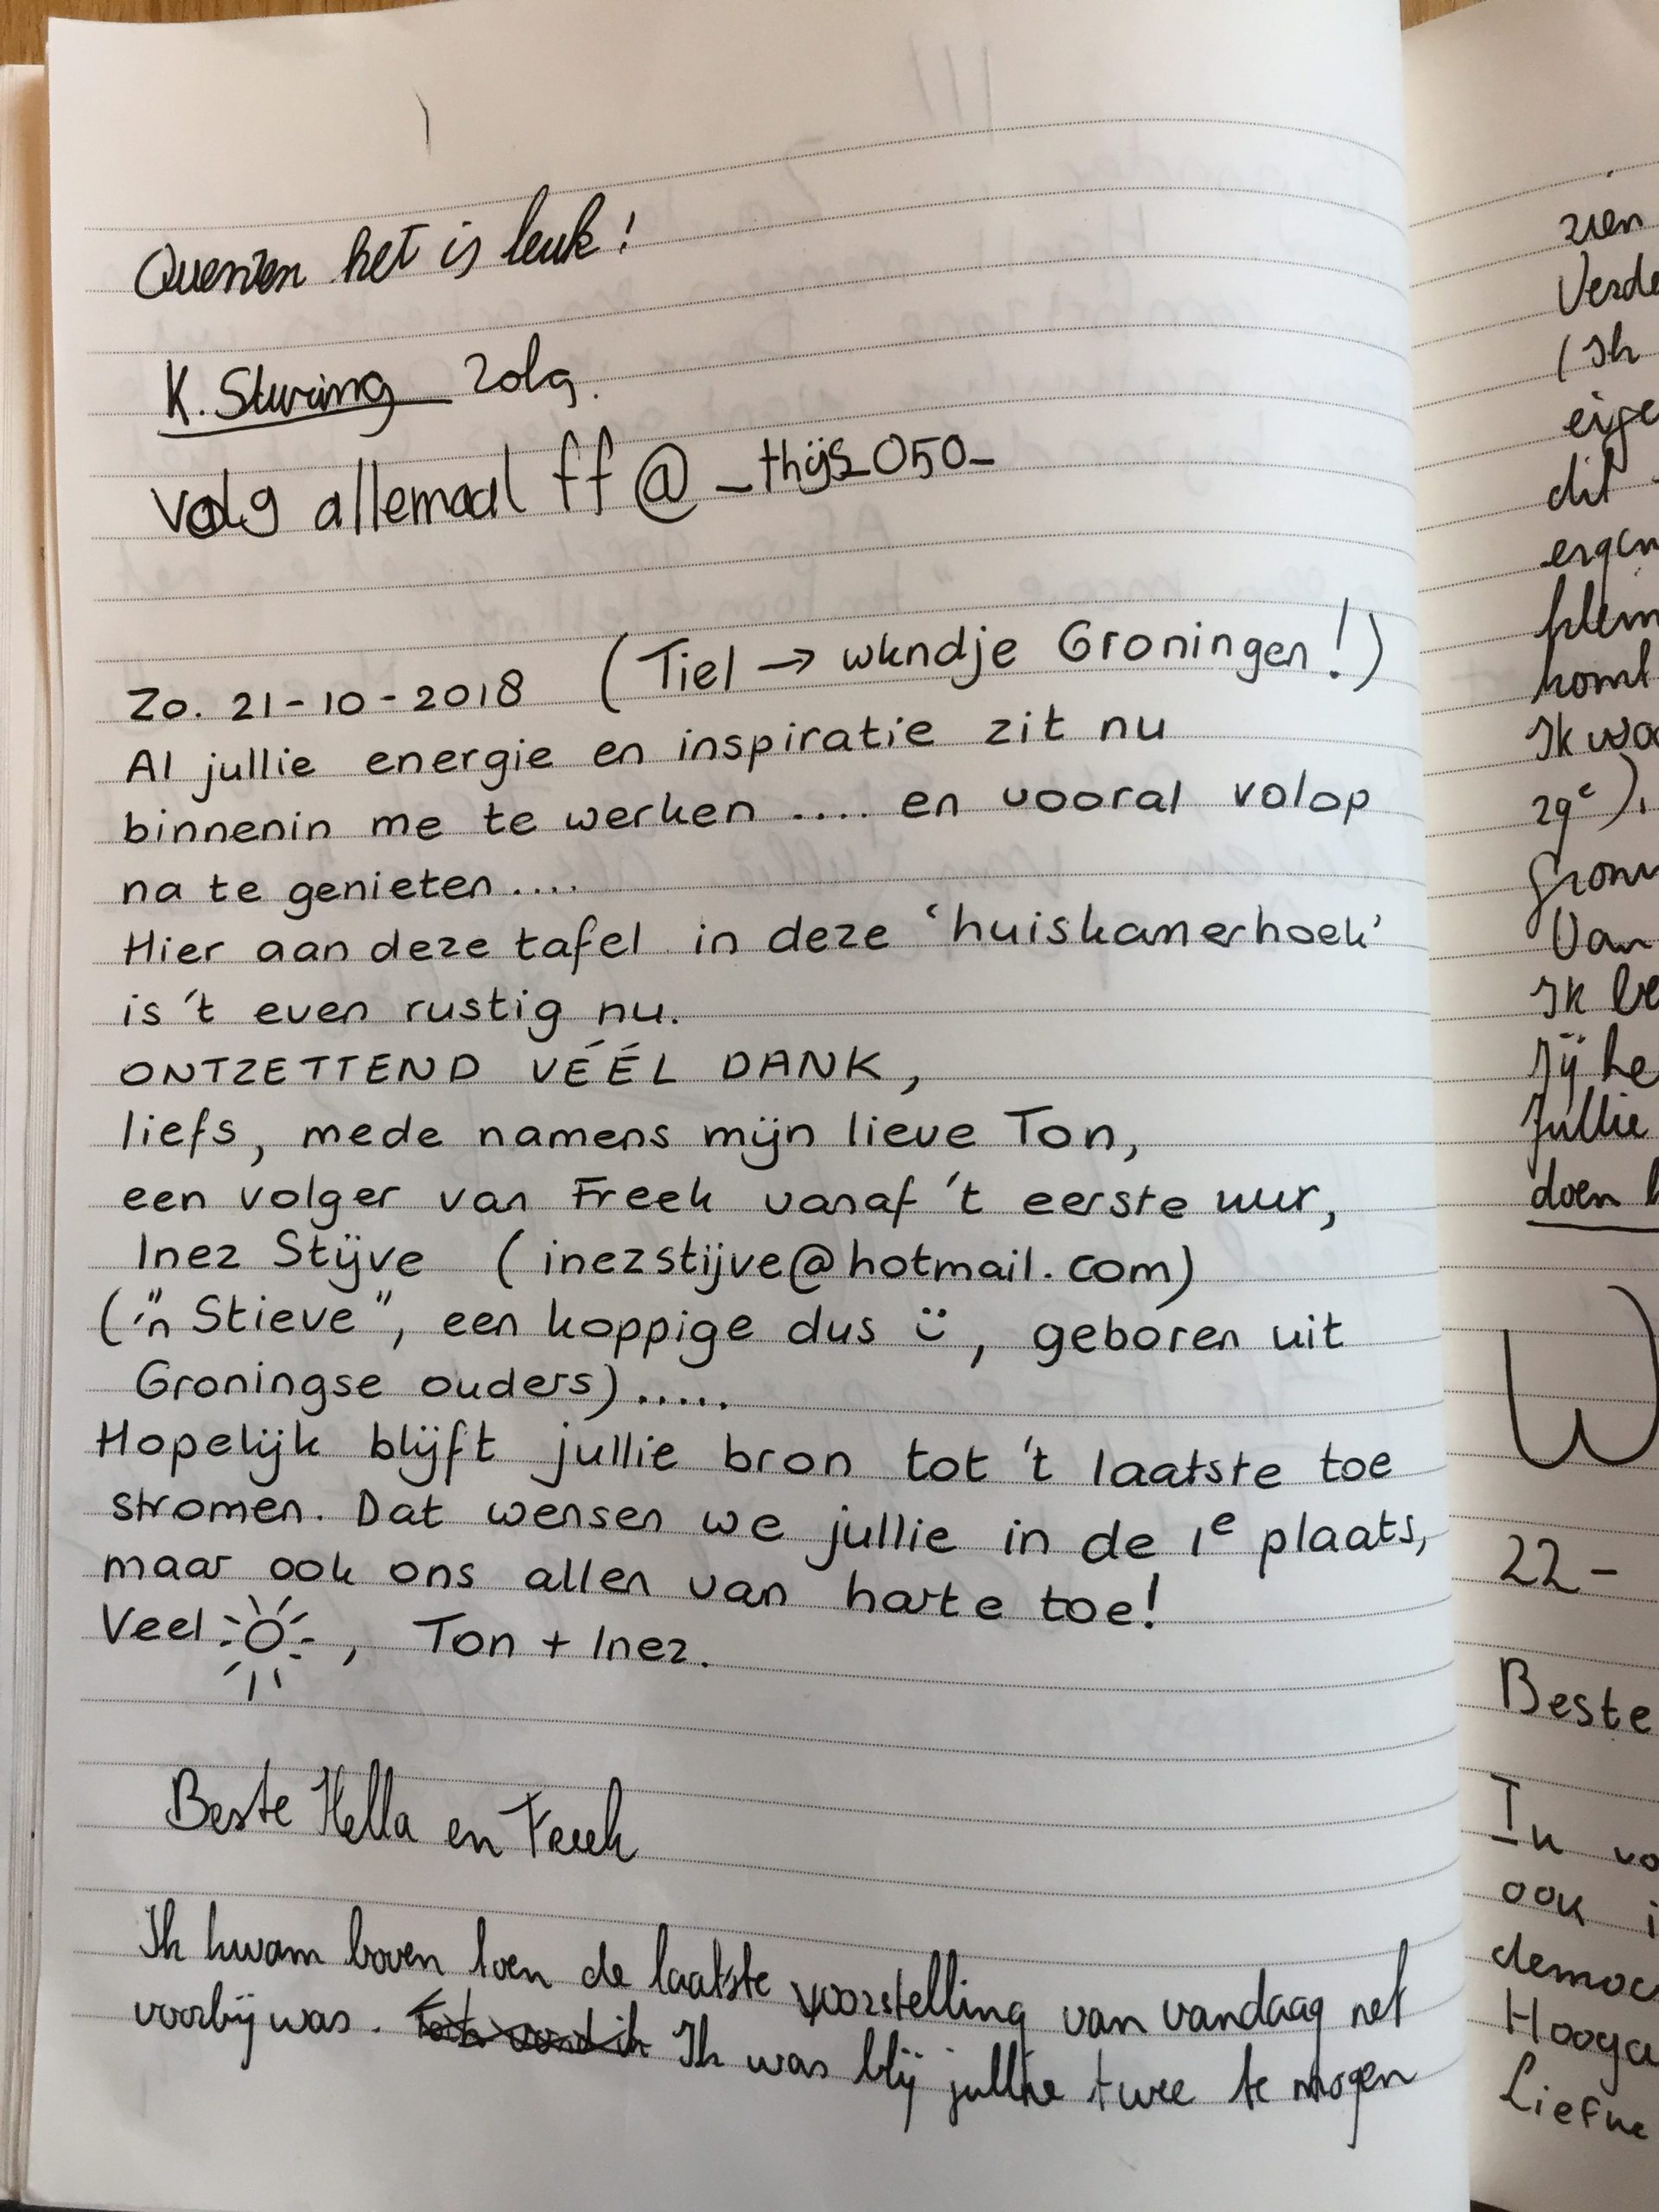 het is leuk!
K. Sturing
volg allemaal ff @_thijs_050_
Zo. 21-10-2018 (Tiel → wkndje Groningen!)
Al jullie energie en inspiratie zit nu
binnenin me te werken .... en vooral volop
na te genieten ....
Hier aan deze tafel in deze 'huiskamerhoek'
is 't even rustig nu.
ONTZETTEND VÉÉL DANK,
liefs, mede namens mijn lieve Ton,
een volger van Freek vanaf 't eerste uur,
Inez Stijve (inezstijve@hotmail.com)
("'n Stieve", een koppige dus, geboren uit
Groningse ouders).....
Hopelijk blijft jullie bron tot 't laatste toe
stromen. Dat wensen we jullie in de 1e plaats,
maar ook ons allen van harte toe!
Veel , Ton + Inez.
Beste Hella en Freek
Ik kwam boven toen de laatste voorstelling van vandaag net
voorbij was. Ik was blij jullie twee te mogen
zien
Verde
(Ik
eige
dit
ergen
klein
komt
Ik wo
29e).
Gron
Van
Ik be
Jij he
Jullie
doen
W
22-
Beste
In vo
ook i
democ
Hooga
Liefne